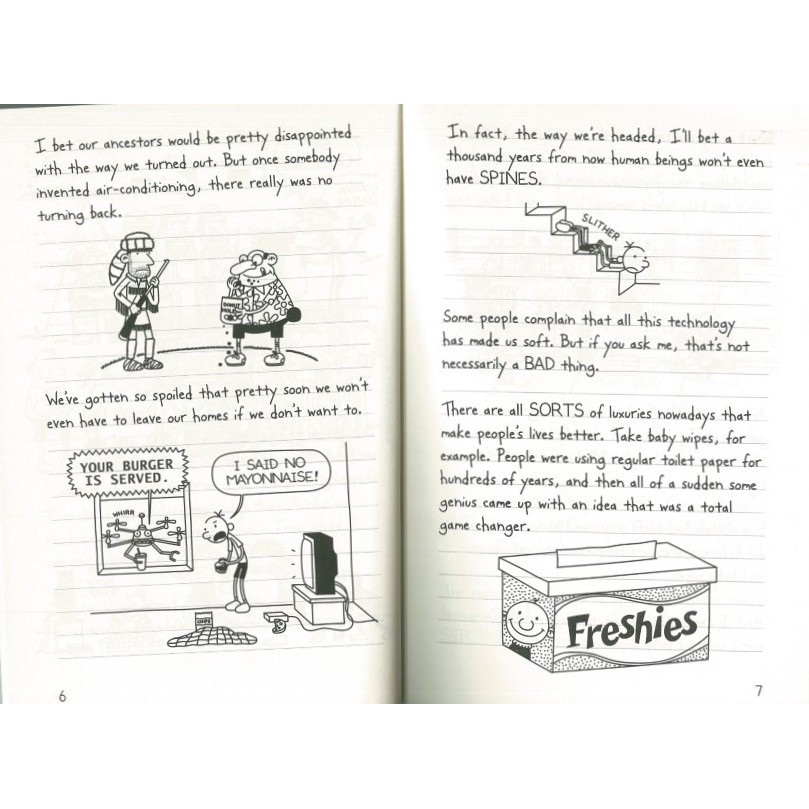 I bet our ancestors would be pretty disappointed
with the way we turned out. But once somebody
invented air-conditioning, there really was no
turning back.
DONUT
HOLES
We've gotten so spoiled that pretty soon we won't
even have to leave our homes if we don't want to.
YOUR BURGER
IS SERVED.
I SAID NO
MAYONNAISE!
WHIRR
CHIPS
6
In fact, the way we're headed, I'll bet a
thousand years from now human beings won't even
have SPINES.
SLITHER
Some people complain that all this technology
has made us soft. But if you ask me, that's not
necessarily a BAD thing.
There are all SORTS of luxuries nowadays that
make people's lives better. Take baby wipes, for
example. People were using regular toilet paper for
hundreds of years, and then all of a sudden some
genius came up with an idea that was a total
game changer.
Freshies
7